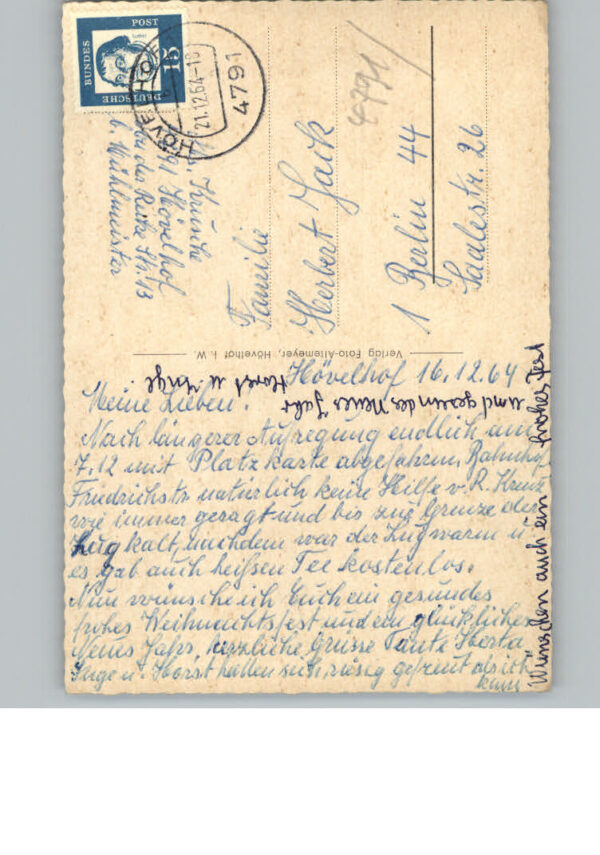 DEUTSCHE
BUNDES
POST
15
HÖVELHOF
21.12.64-18
4791
4791
H. Krusche
4791 Hövelhof
Str. 13
b. Mühlmeister
Familie
Herbert Jack
1 Berlin 44
Saalestr. 26
Verlag Foto-Altemeyer, Hövelhof i. W.
Hövelhof 16.12.64
Meine Lieben!
Nach längerer Aufregung endlich am
7.12 mit Platzkarte abgefahren, Bahnhof
Friedrichstr natürlich keine Hilfe v. R. Kreuz
wie immer gesagt und bis zur Grenze der
Zug kalt, nachdem war der Zug warm u
es gab auch heißen Tee kostenlos.
Nun wünsche ich Euch ein gesundes
frohes Weihnachtsfest und ein glückliches
Neues Jahr, herzliche Grüsse Tante Herta
Inge u. Horst hatten sich riesig gefreut als ich
kam
Wünschen auch ein frohes Fest
und gesundes Neues Jahr
Horst u. Inge.